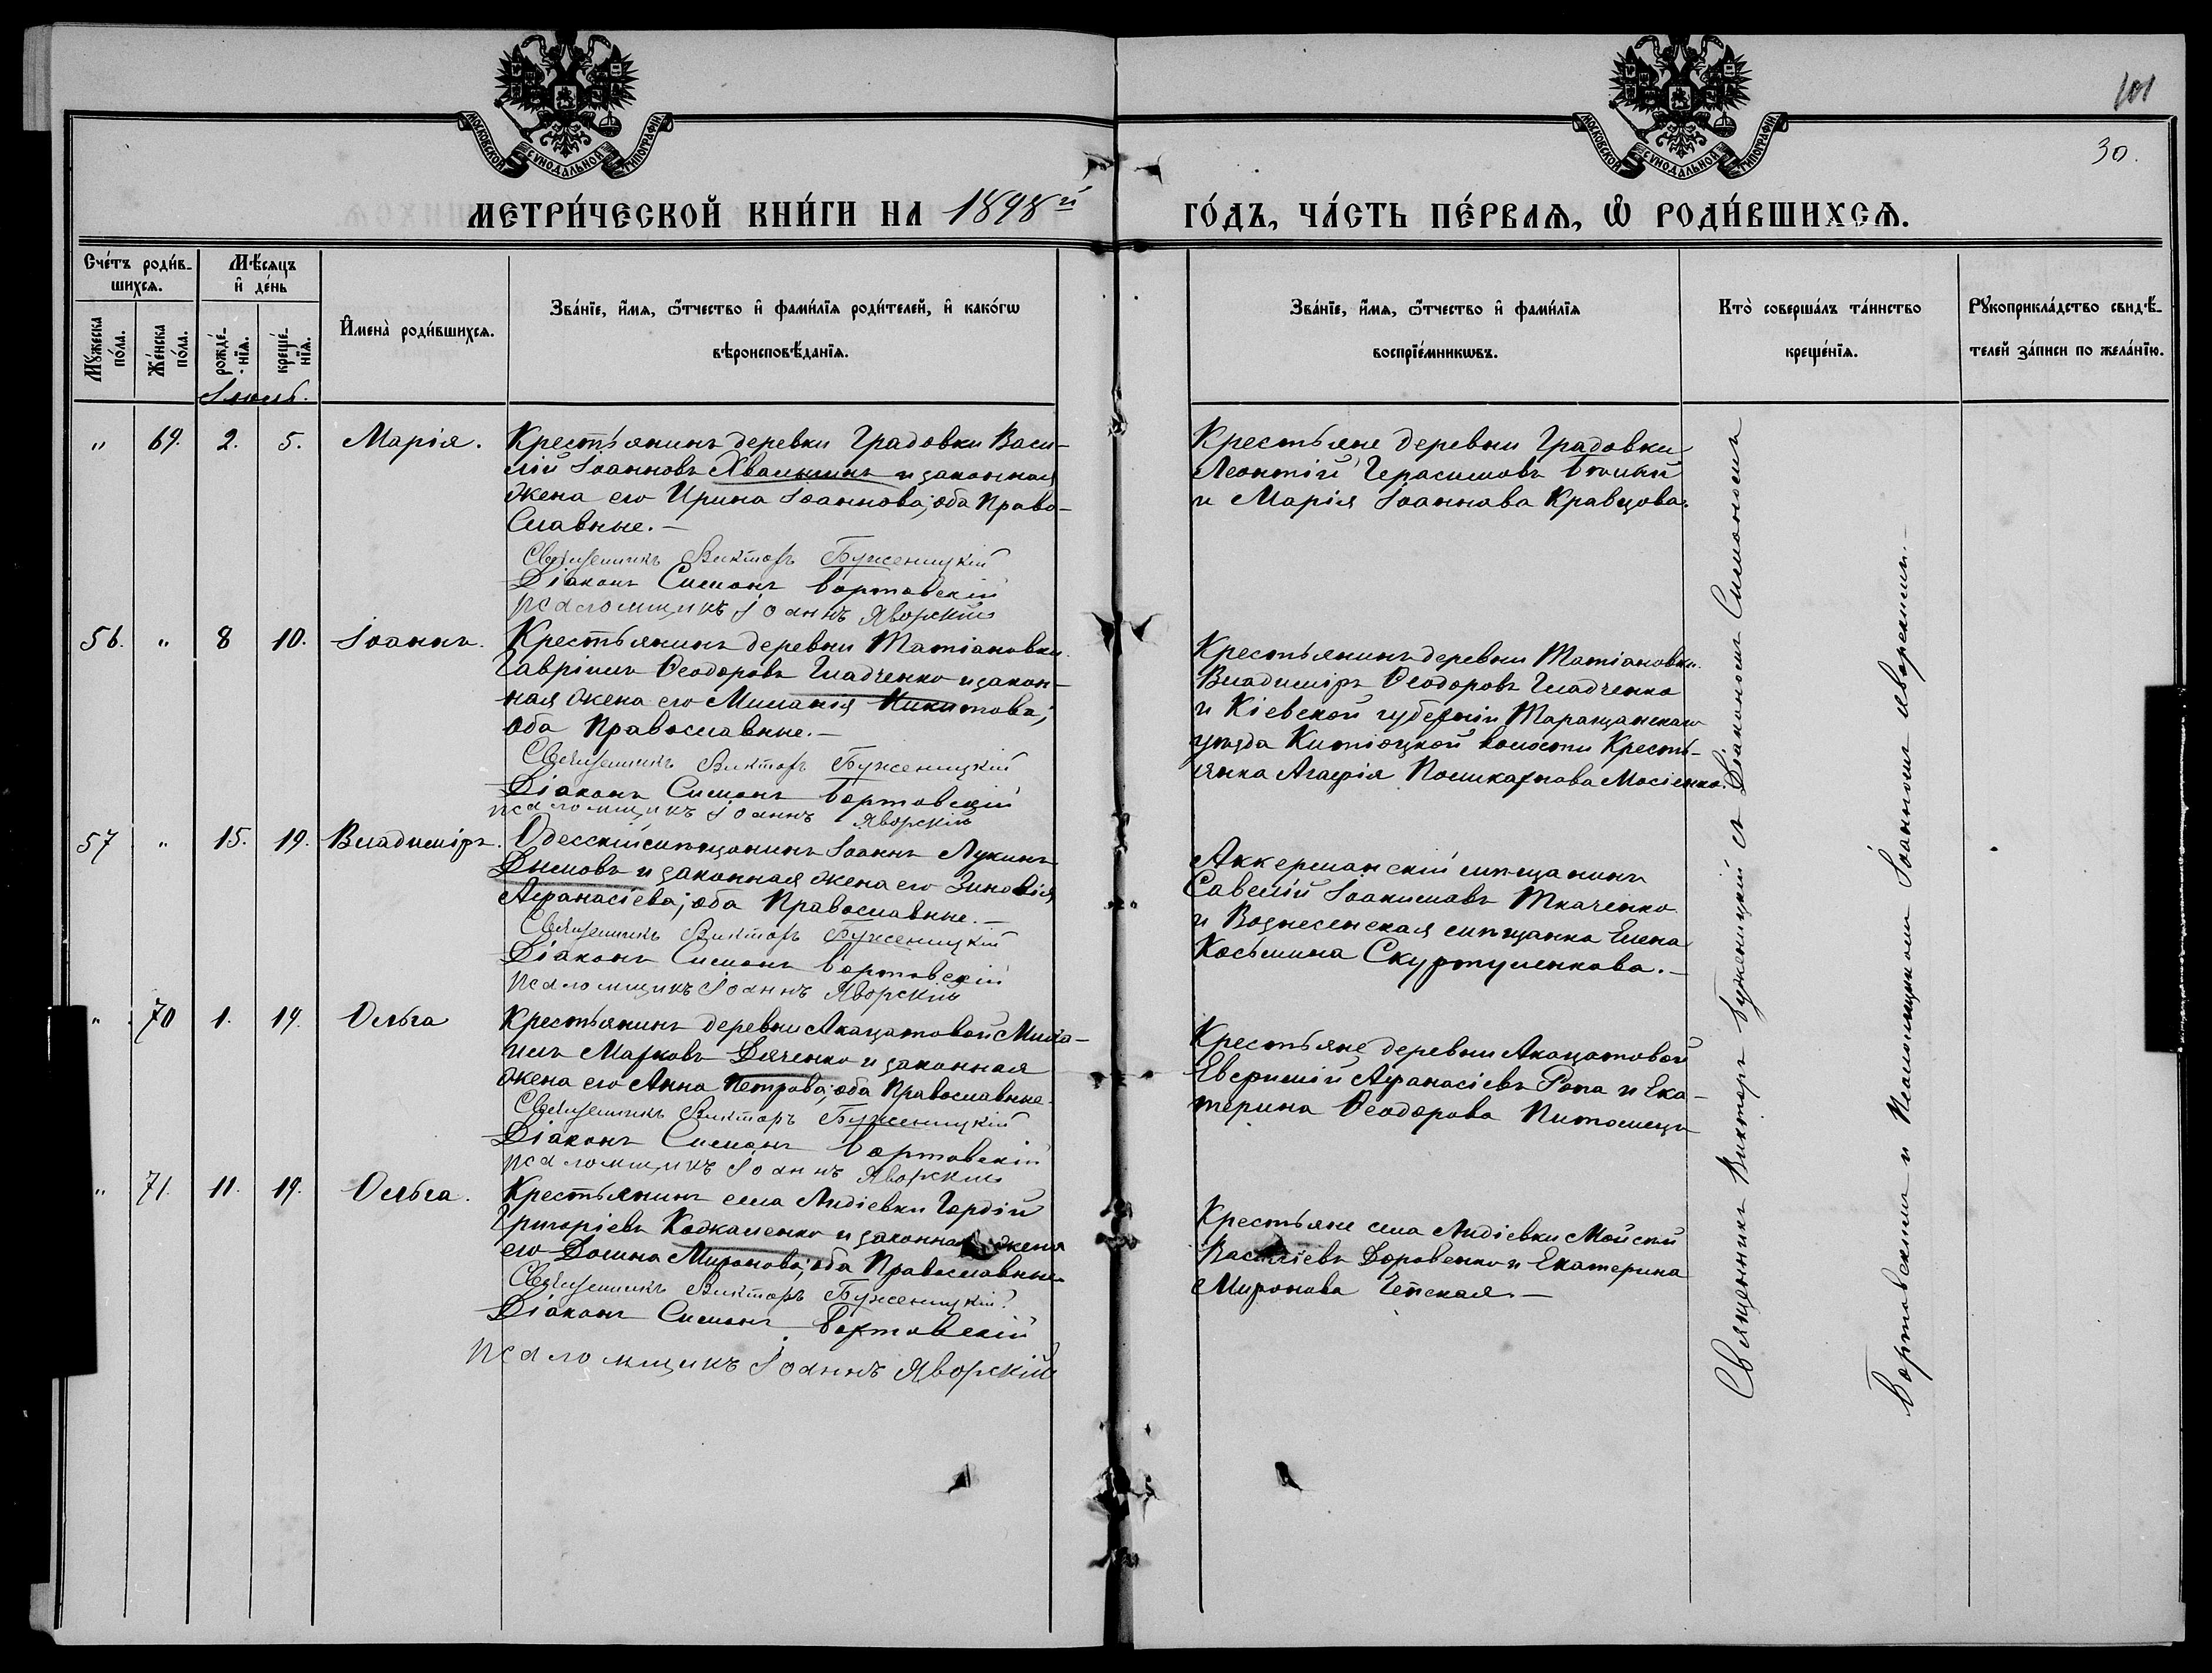 МОСКОВСКОЙ СѴНОДАЛЬНОЙ ТИПОГРАФІИ
МОСКОВСКОЙ СѴНОДАЛЬНОЙ ТИПОГРАФІИ
101
30.
МЕТРИ́ЧЕСКОЙ КНИ́ГИ НА 1898й ГО́ДЪ, ЧА́СТЬ ПЕ́РВАѦ, Ѡ҆ РОДИ́ВШИХСѦ.
Сче́тъ роди́в-
шихсѧ.
Мѣ́сѧцъ
и҆ де́нь
Мꙋ́жеска
по́ла.
Же́нска
по́ла.
рожде́-
нїѧ.
креще́-
нїѧ.
И҆мена̀ роди́вшихсѧ.
Зва́нїе, и҆́мѧ, ѻ҆́тчество и҆ фами́лїѧ роди́телей, и҆ како́гѡ
вѣроисповѣ́данїѧ.
Зва́нїе, и҆́мѧ, ѻ҆́тчество и҆ фами́лїѧ
воспрїе́мникѡвъ.
Кто̀ соверша́лъ та́инство
креще́нїѧ.
Рꙋкоприкла́дство свидѣ́-
телей за́писи по жела́нїю.
Іюль.
" 69. 2. 5. Марія.
Крестьянинъ деревни Градовки Васи-
лій Іоанновъ Хвалынъ и законная
жена его Ирина Іоаннова; оба Право-
славные.-
Священникъ Викторъ Буженицкій
Діаконъ Симонъ Бортовскій
Псаломщикъ Іоаннъ Яворскій
Крестьяне деревни Градовки
Леонтій Герасимовъ
и Марія Іоаннова Кравцова.
56. " 8 10. Іоаннъ.
Крестьянинъ деревни Татіановки
Гавріилъ Ѳеодоровъ Гладченко и закон-
ная жена его Миланія Никитова;
оба Православные.-
Священникъ Викторъ Буженицкій
Діаконъ Симонъ Бортовскій
Псаломщикъ Іоаннъ Яворскій
Крестьянинъ деревни Татіановки
Владиміръ Ѳеодоровъ Гладченко
и Кіевской губерніи Таращанскаго
уѣзда волости Кресть-
янка Агафія Поликарпова Мосіенко.
57 " 15. 19. Владиміръ.
Одесскій мѣщанинъ Іоаннъ Лукинъ
Дымовъ и законная жена его Зиновія
Аѳанасіева; оба Православные.-
Священникъ Викторъ Буженицкій
Діаконъ Симонъ Бортовскій
Псаломщикъ Іоаннъ Яворскій
Аккерманскій мѣщанинъ
Савелій Іоакимовъ Ткаченко
и Вознесенская мѣщанка Елена
Косьмина Скуртуленкова.-
" 70 1. 19. Ольга
Крестьянинъ деревни Акацатовой Миха-
илъ Марковъ Дяченко и законная
жена его Анна Петрова; оба Православные.
Священникъ Викторъ Буженицкій
Діаконъ Симонъ Бортовскій
Псаломщикъ Іоаннъ Яворскій
Крестьяне деревни Акацатовой
Евфимій Аѳанасіевъ Рота и Ека-
терина Ѳеодорова Питомецъ
" 71. 11. 19. Ольга.
Крестьянинъ села Лидіевки Гордій
Григоріевъ Коджаленко и законная жена
его Домна Миронова; оба Православные
Священникъ Викторъ Буженицкій
Діаконъ Симонъ Бортовскій
Псаломщикъ Іоаннъ Яворскій
Крестьяне села Лидіевки Моисей
Василіевъ Доровенко и Екатерина
Миронова Чепская.-
Священникъ Викторъ Буженицкій съ Діакономъ Симономъ
Бортовскимъ и Псаломщикомъ Іоанномъ Яворскимъ.-